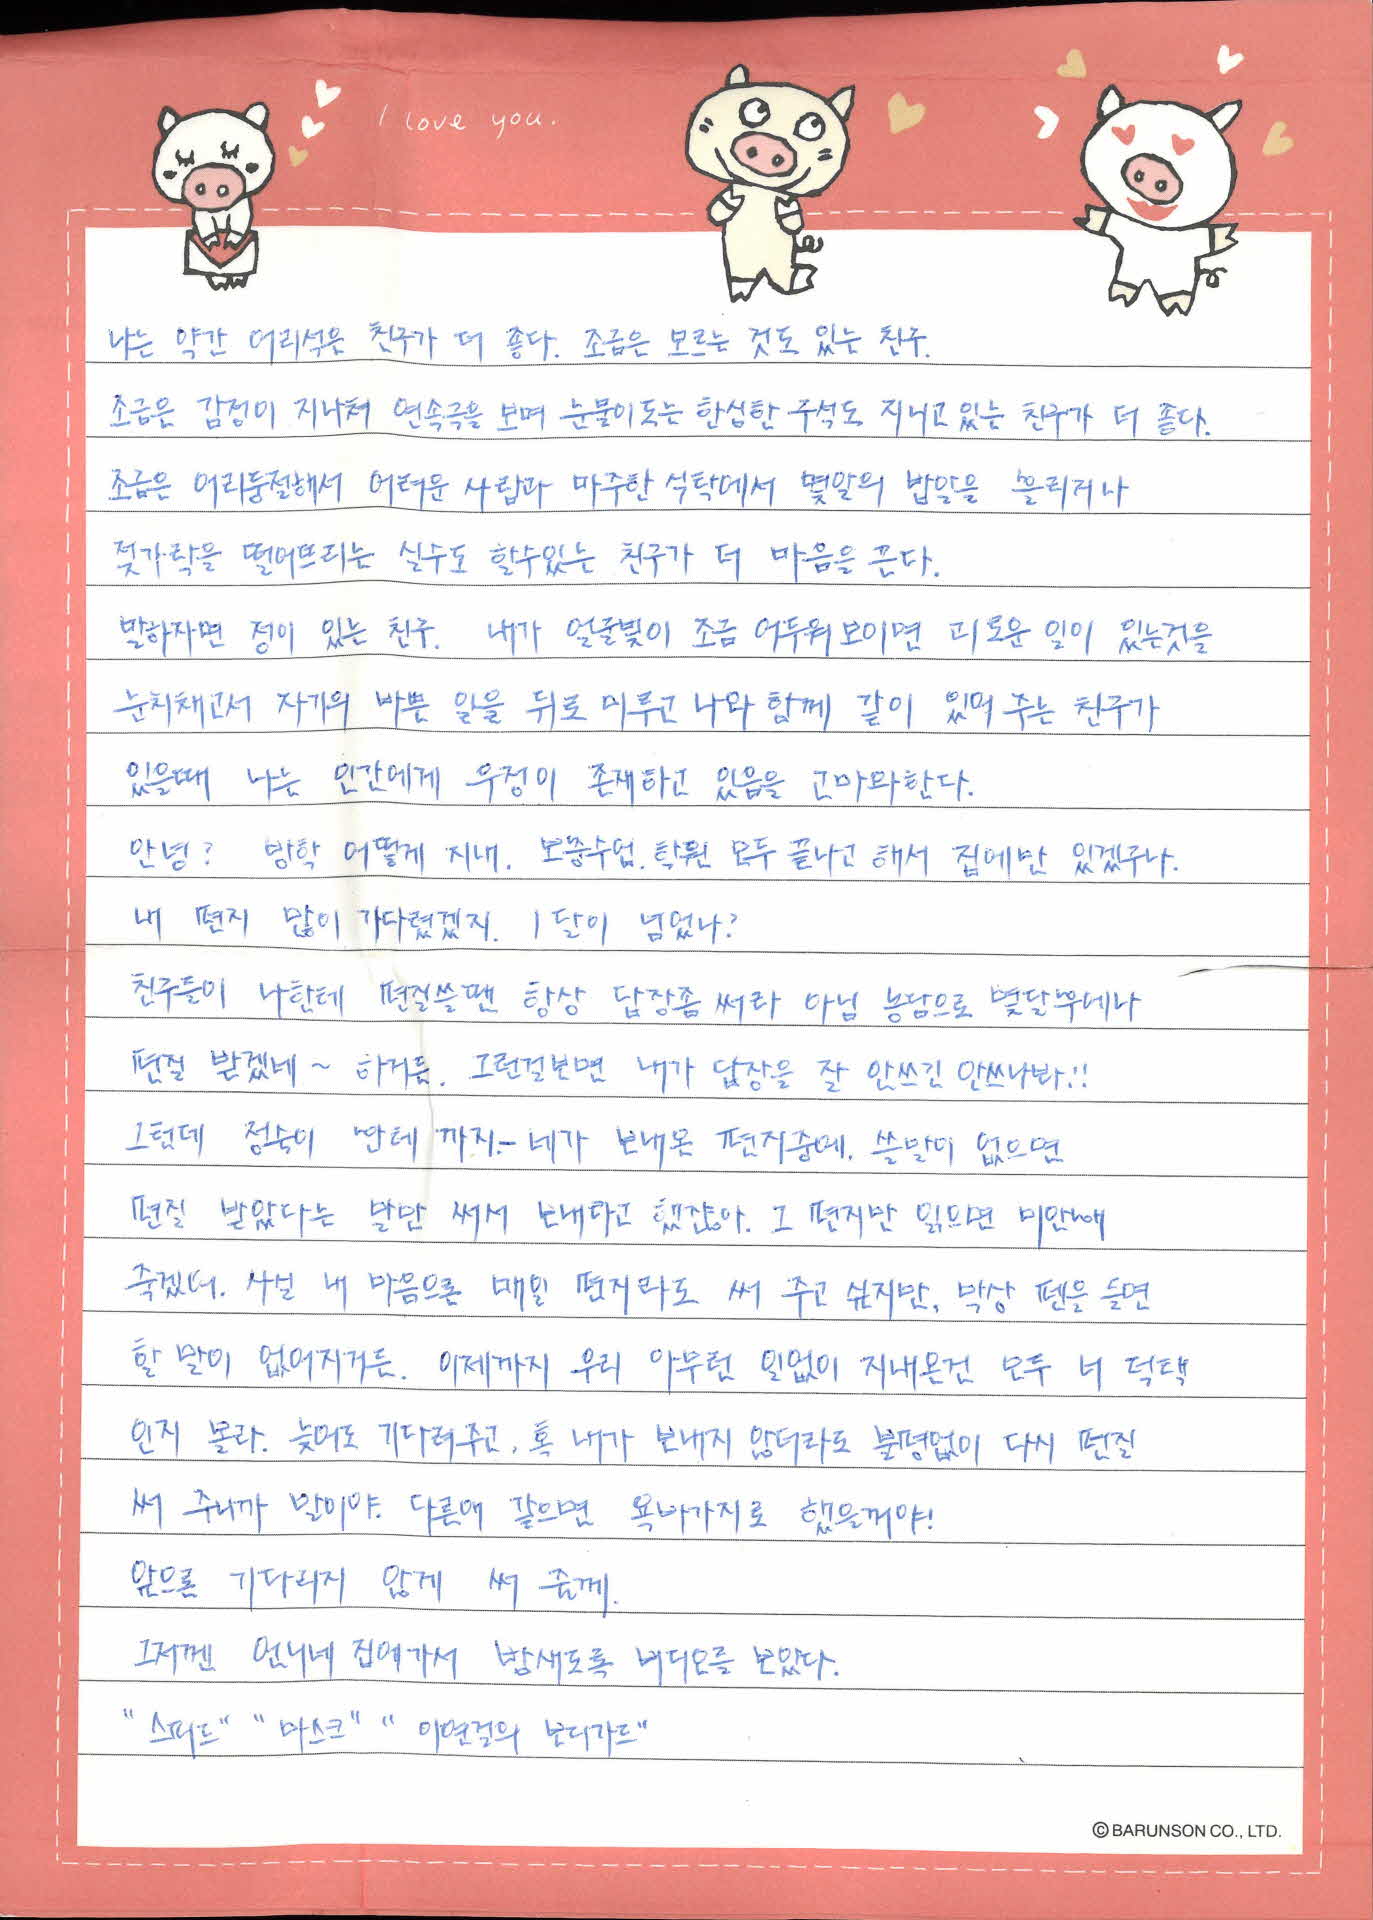 I love you.
나는 약간 어리석은 친구가 더 좋다. 조금은 모르는 것도 있는 친구.
조금은 감정이 지나쳐 연속극을 보며 눈물이도는 한심한 구석도 지니고있는 친구가 더 좋다.
조금은 어리둥절해서 어려운 사람과 마주한 식탁에서 몇알의 밥알을 흘리거나
젓가락을 떨어뜨리는 실수도 할수있는 친구가 더 마음을 끈다.
말하자면 정이 있는 친구. 내가 얼굴빛이 조금 어두워보이면 괴로운 일이 있는것을
눈치채고서 자기의 바쁜 일을 뒤로 미루고 나와 함께 같이 있어 주는 친구가
있을때 나는 인간에게 우정이 존재하고 있음을 고마와한다.
안녕? 방학 어떻게 지내. 보충수업. 학원 모두 끝나고 해서 집에만 있겠구나.
내 편지 많이 기다렸겠지. 1달이 넘었나?
친구들이 나한테 편질쓸땐 항상 답장좀써라 아님 농담으로 몇달후에나
편질 받겠네~ 하거든. 그런걸보면 내가 답장을 잘 안쓰긴 안쓰나봐!!
그런데 정숙이 한테 까지- 네가 보내온 편지중에. 쓸말이 없으면
편질 받았다는 말만 써서 보내라고 했잖아. 그 편지만 읽으면 미안해
죽겠더. 사실 내 마음으론 매일 편지라도 써 주고 싶지만, 막상 펜을 들면
할 말이 없어지거든. 이제까지 우리 아무런 일없이 지내온건 모두 너 덕택
인지 몰라. 늦어도 기다려주고, 혹 내가 보내지 않더라도 불평없이 다시 편질
써 주니까 말이야. 다른애 같으면 욕바가지로 했을꺼야!
앞으론 기다리지 않게 써 줄께.
그저껜 언니네 집에가서 밤새도록 비디오를 보았다.
"스피드" "마스크" "이연걸의 보디가드"
©BARUNSON CO., LTD.